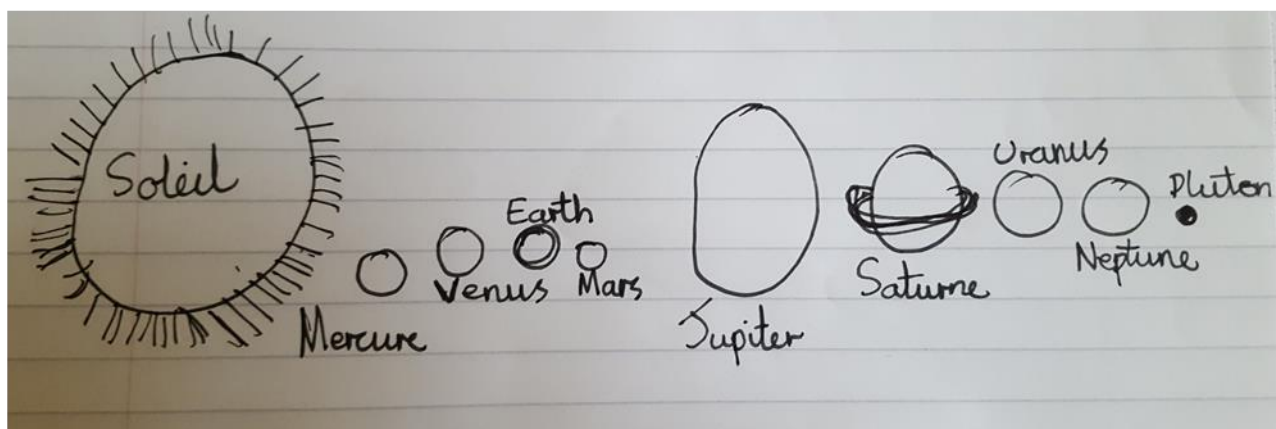 Soleil
Mercure
Venus
Earth
Mars
Jupiter
Saturne
Uranus
Neptune
Pluton